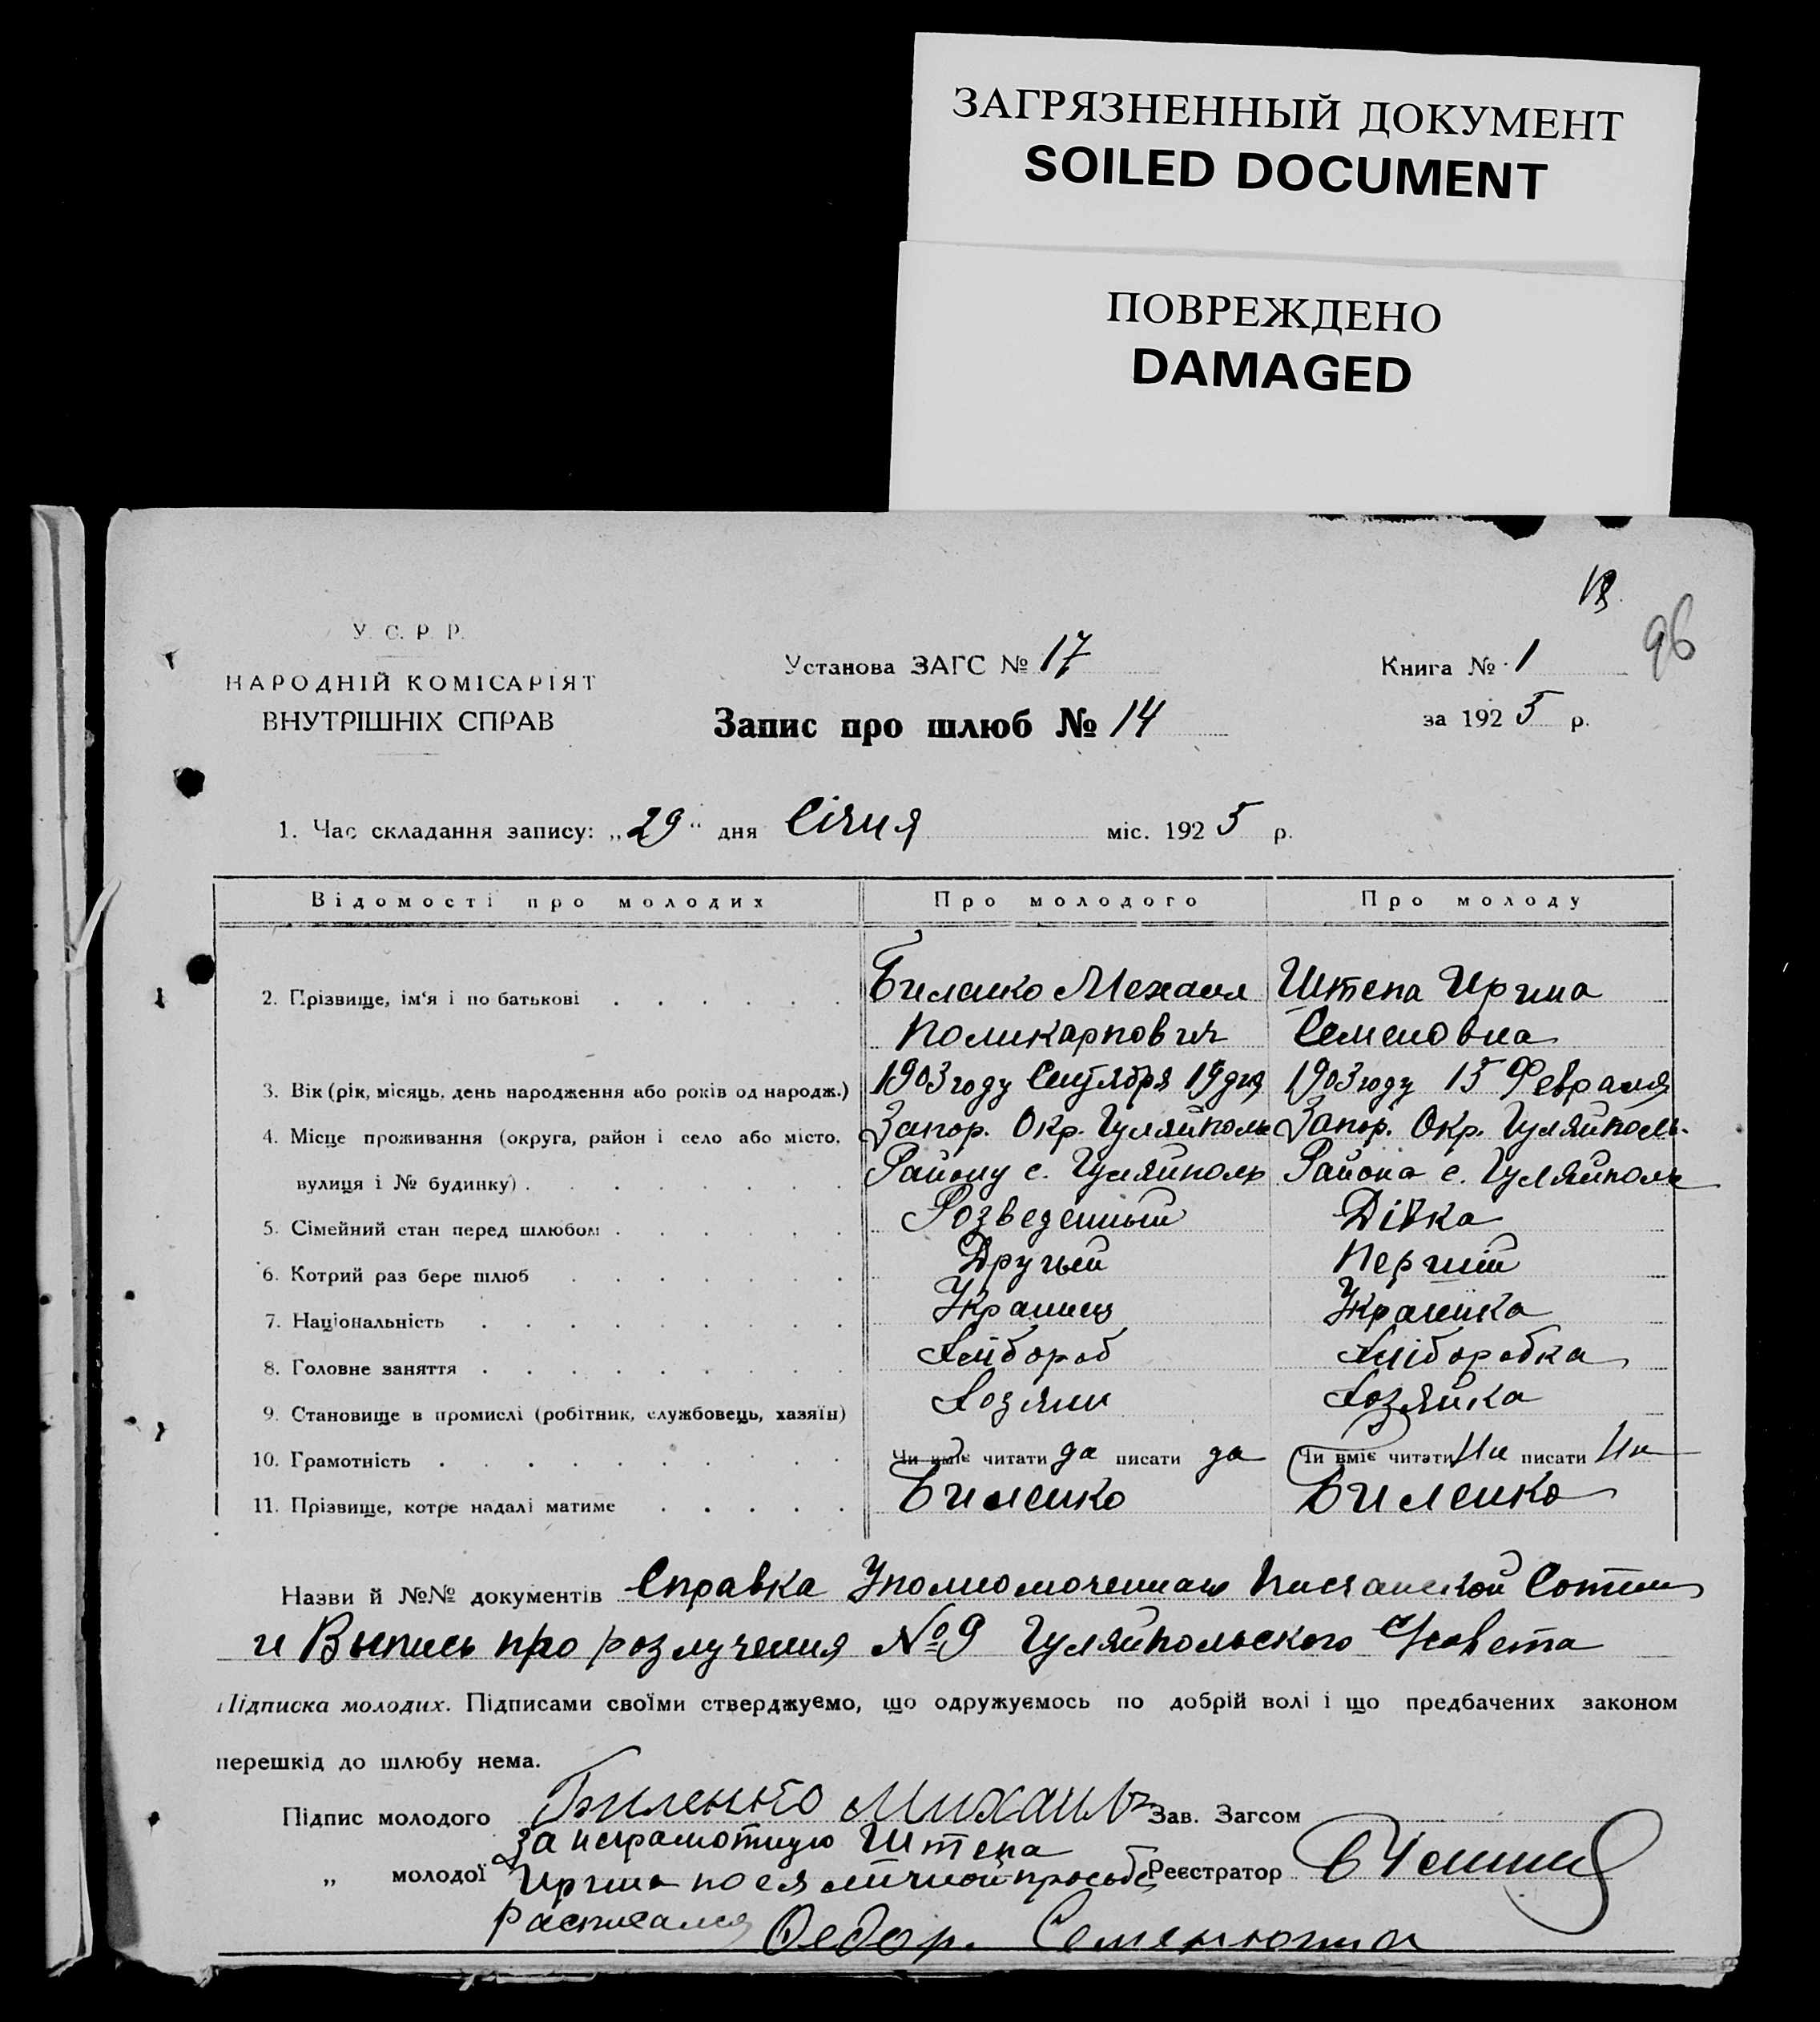 ЗАГРЯЗНЕННЫЙ ДОКУМЕНТ
SOILED DOCUMENT
ПОВРЕЖДЕНО
DAMAGED
96
У. С. Р. Р.
НАРОДНІЙ КОМІСАРІЯТ
ВНУТРІШНІХ СПРАВ
Установа ЗАГС № 17
Запис про шлюб № 14
Книга № 1
за 1925 р.
1. Час складання запису: „29“ дня Січня міс. 1925 р.
Відомості про молодих Про молодого Про молоду
2. Прізвище, ім‘я і по батькові Биленко Механл Штепа Ирина
Поликарпович Семеновна
3. Вік (рік, місяць, день народження або років од народж.) 1903 году Сентября 19 дня 1903 году 15 Февраля
4. Місце проживання (округа, район і село або місто, Запор. Окр. Гуляйполь Запор. Окр. Гуляйполь.
вулиця і № будинку) Району с. Гуляйполь Района с. Гуляйполь
5. Сімейний стан перед шлюбом Розведенный Дівка
6. Котрий раз бере шлюб Другый Перший
7. Національність Украинец Украинка
8. Головне заняття Хлібороб Хліборобка
9. Становище в промислі (робітник, службовець, хазяїн) Хозяин Хозяйка
10. Грамотність Чи вміє читати да писати да Чи вміє читати Ни писати Ни
11. Прізвище, котре надалі матиме Биленко Биленко
Назви й №№ документів Справка Уполномоченнаго Песчанской Сотни
и Выпись про розлучения №9 Гуляйпольского С/совета
Підписка молодих. Підписами своїми стверджуємо, що одружуємось по добрій волі і що предбачених законом
перешкід до шлюбу нема.
Підпис молодого Биленко Михаил Зав. Загсом
за неграмотную Штепа
„ молодої Ирина по ея личной просьбе Реєстратор
расписался Федор. Семенюта